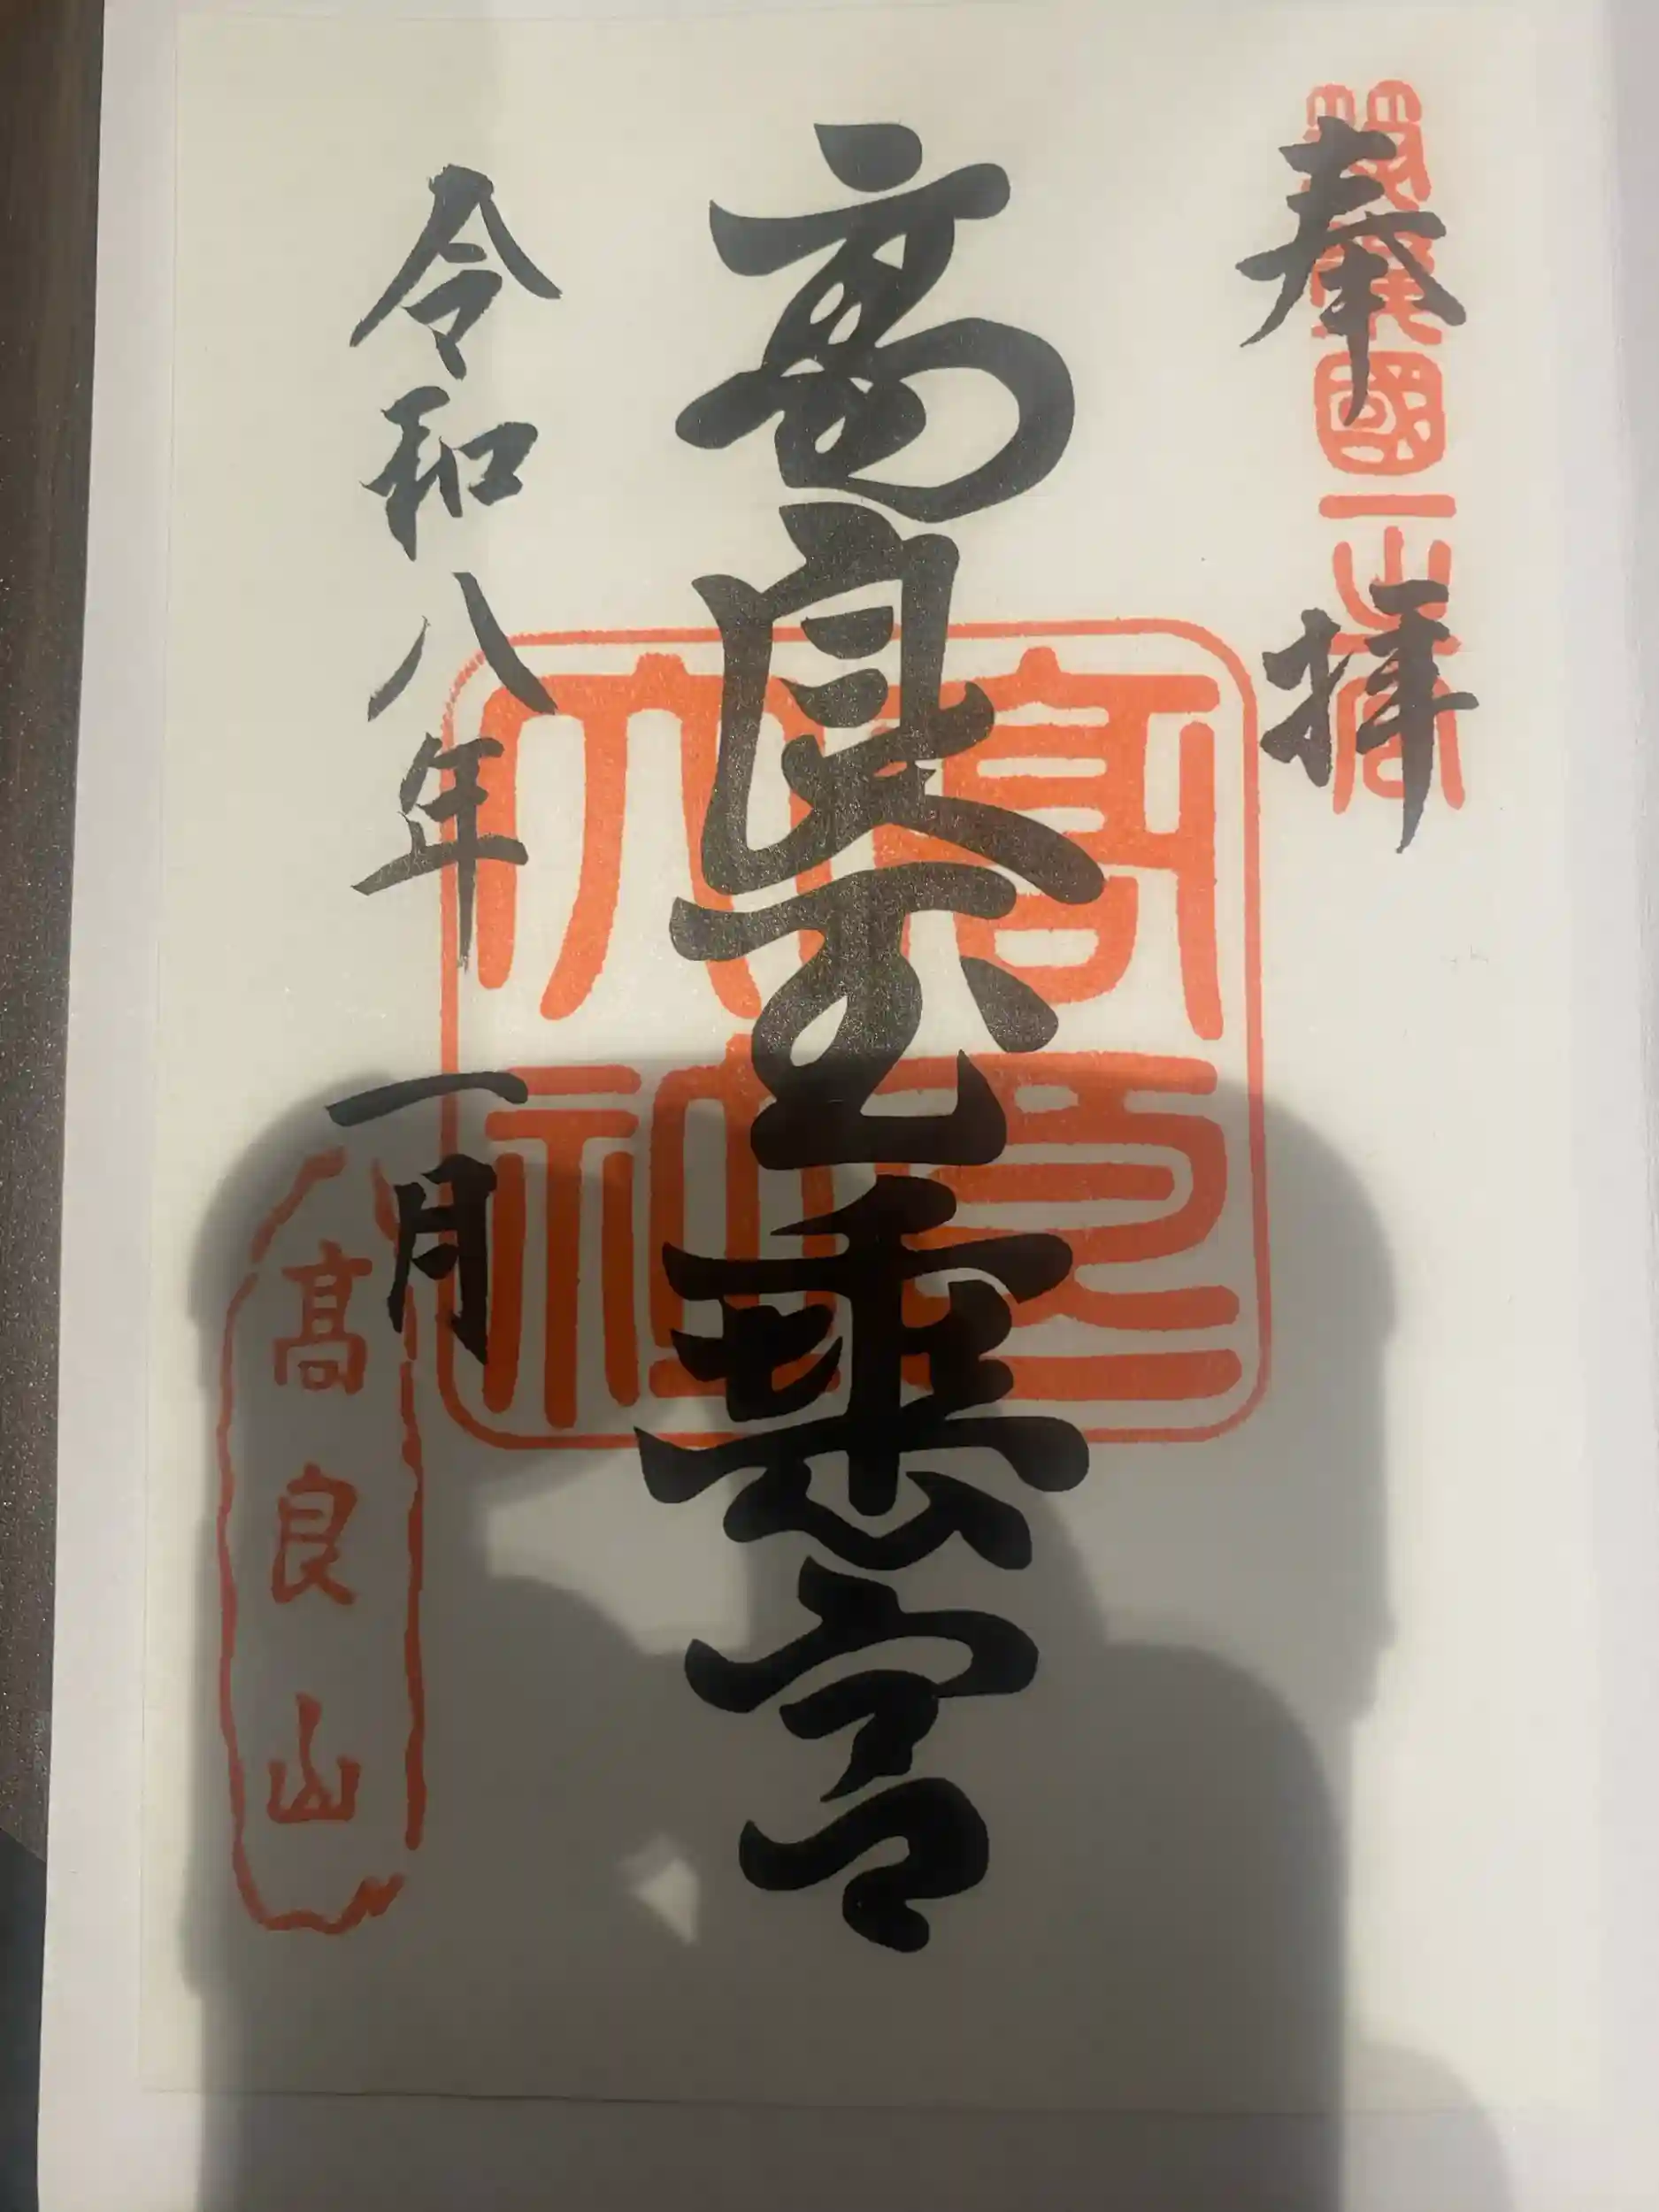 奉拝
國一
高良玉垂宮
高良
令和八年一月
高良山